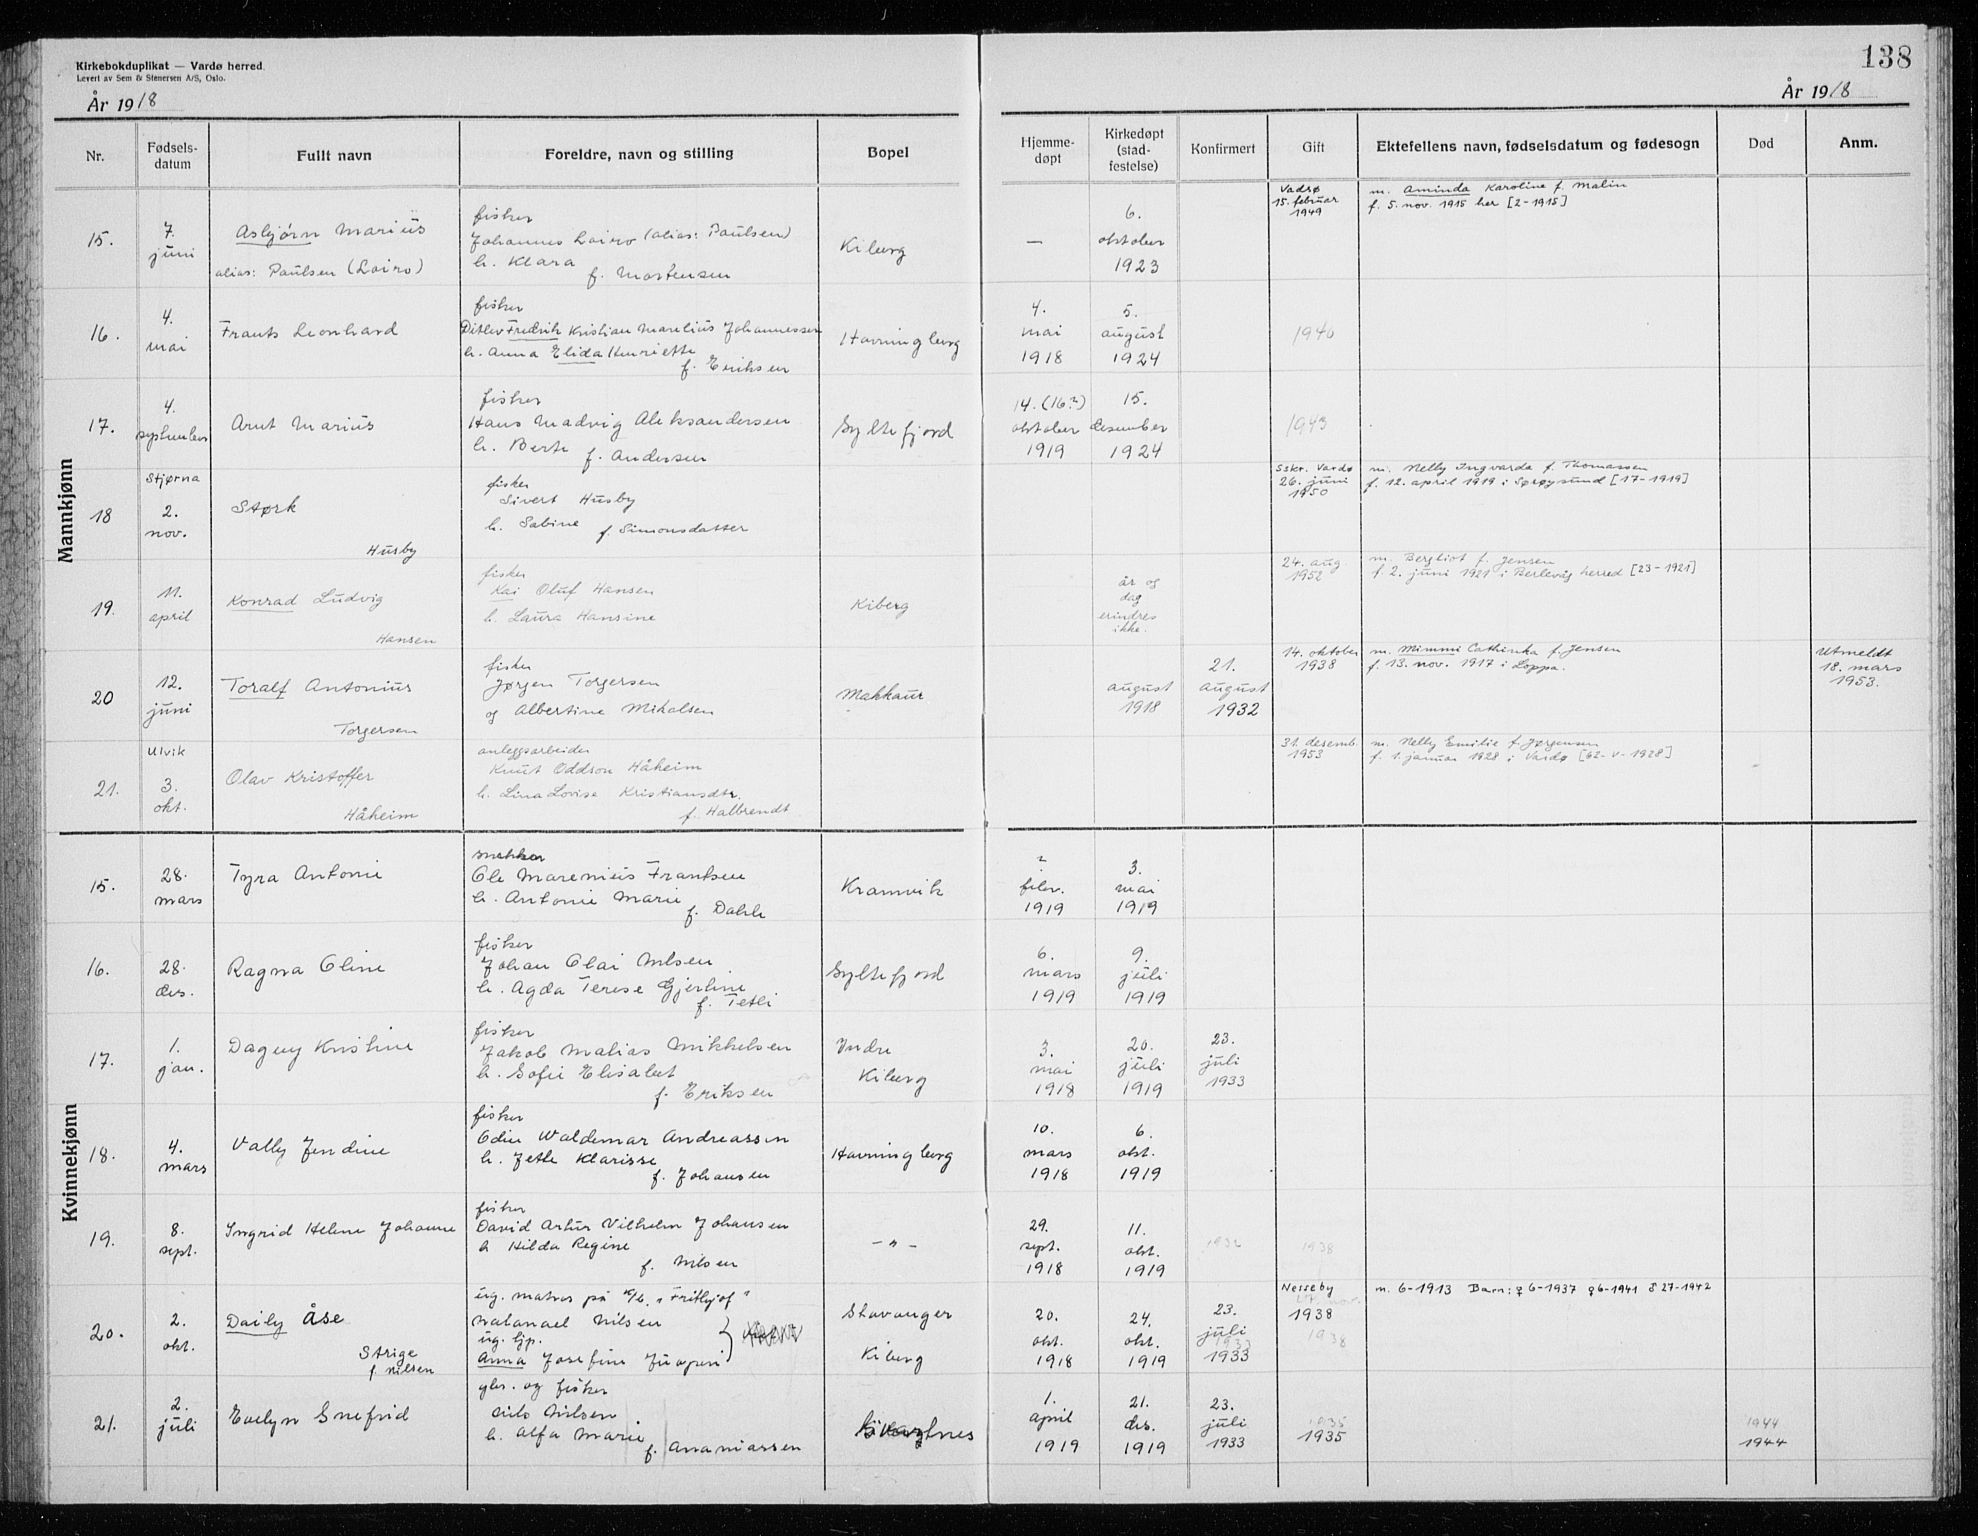 Kirkebokduplikat — Vardø herred.
Levert av Sem & Stenersen A/S, Oslo.
År 1918
138
År 1918
Nr.
Fødsels-
datum
Fullt navn
Foreldre, navn og stilling
Bopel
Hjemme-
døpt
Kirkedøpt
(stad-
festelse)
Konfirmert
Gift
Ektefellens navn, fødselsdatum og fødesogn
Død
Anm.
Mannkjønn
15.
7.
juni
Asbjørn Marius
alias: Paulsen (Loiro)
fisker
Johannes Loiro (alias: Paulsen)
h. Klara
f. Mortensen
Kiberg
—
6.
oktober
1923
Vadsø
15. februar
1949
m. Aminda Karoline f. Malin
f. 5. nov. 1915 her [2-1915]
16.
4.
mai
Frants Leonhard
fisker
Ditlev Fredrik Kristian Marelius Johannessen
h. Anna Elida Henriette
f. Eriksen
Havningberg
4.
mai
1918
5.
august
1924
1940
17.
4.
september
Arnt Marius
fisker
Hans Madvig Aleksandersen
h. Berte
f. Andersen
Syltefjord
14. (16?)
oktober
1919
15.
desember
1924
1943
Stjørna
18
2.
nov.
Størk
Husby
fisker
Sivert Husby
h. Sabine
f. Simonsdatter
Sskr. Vardø
26. juni
1950
m. Nelly Ingvarda f. Thomassen
f. 12. april 1919 i Sørøysund [17-1919]
19.
11.
april
Konrad Ludvig
Hansen
fisker
Kai Oluf Hansen
h. Laura Hansine
Kiberg
år og
dag
erindres
ikke.
24. aug.
1952
m. Bergliot f. Jensen
f. 2. juni 1921 i Berlevåg herred [23-1921]
20
12.
juni
Toralf Antonius
Torgersen
fisker
Jørgen Torgersen
og Albertine Mikalsen
Makkaur
august
1918
21.
august
1932
14. oktober
1938
m. Mimmi Cathinka f. Jensen
f. 13. nov. 1917 i Loppa.
Utmeldt
18. mars
1953.
Ulvik
21.
3.
okt.
Olav Kristoffer
Håheim
anleggsarbeider
Knut Oddson Håheim
h. Lina Lovise Kristiansdtr.
f. Halbrendt
31. desemb.
1953
m. Nelly Emilie f. Jørgensen
f. 1. januar 1928 i Vardø [62-V-1928]
Kvinnekjønn
15.
28.
mars
Tyra Antonie
snekker
Ole Marenius Frantsen
h. Antonie Marie
f. Dahle
Kramvik
?
febr.
1919
3.
mai
1919
16.
28.
des.
Ragna Oline
fisker
Johan Olai Nilsen
h. Agda Terese Gjerline
f. Tetli
Syltefjord
6.
mars
1919
9.
juli
1919
17.
1.
jan.
Dagny Kristine
fisker
Jakob Matias Mikkelsen
h. Sofie Elisabet
f. Eriksen
Indre
Kiberg
3.
mai
1918
20.
juli
1919
23.
juli
1933
18.
4.
mars
Vally Jendine
fisker
Odin Waldemar Andreassen
h. Jette Klarisse
f. Johansen
Havningberg
10.
mars
1918
6.
okt.
1919
19.
8.
sept.
Ingrid Helene Johanne
fisker
David Artur Vilhelm Johansen
h Hilda Regine
f. Nilsen
—"—
29.
sept.
1918
11.
okt.
1919
1932
1938
20.
2.
okt.
Daily Åse
Strige
f. Nilsen
ug. matros på "Frithjof"
Natanael Nilsen
ug. tjp.
Anna Josefine
Stavanger
Kiberg
20.
okt.
1918
24.
okt.
1919
23.
juli
1933
1933
Nesseby
17. nov.
1938
1938
m. 6-1913 Barn: ♀6-1937 ♀6-1941 ♂27-1942
21.
2.
juli
Evelyn Snefrid
gbr. og fisker
Nils Nilsen
h. Alfa Marie
f. Ananiassen
1.
april
1919
21.
des.
1919
23.
juli
1933
1935
1935
1944
1944